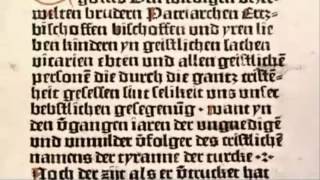 welten brudern Patriarchen Ertz-
bischoffen bischoffen und yren lie
ben kindern yn geistlichen sachen
vicarien ebten und allen geistlichē
personē die durch die gantz cristē
heit gesessen sint selikeit uns unser
bebstlichen gesegenūg · want yn
dē v̄gangen iaren der ungnedigē
und unmilder v̄folger des cristlichē
namens der tyranne der turcke ·:·
Noch der zijt als er v̄trucket hat